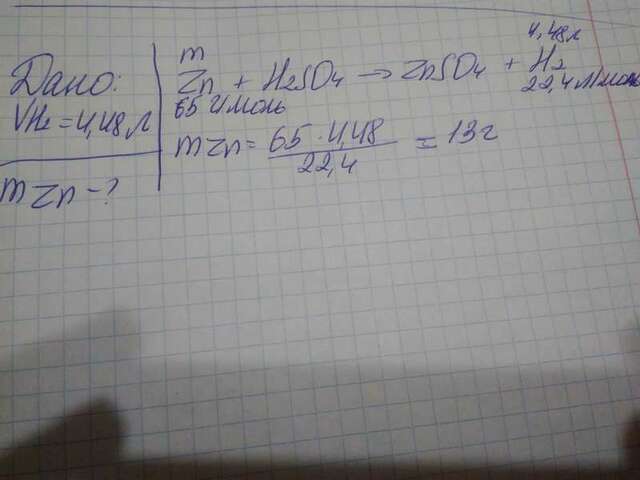 Дано:
VH₂ = 4,48 л
m Zn - ?
m 4,48л
Zn + H₂SO₄ → ZnSO₄ + H₂
65 г/моль 22,4 л/моль
m Zn = 65 · 4,48 / 22,4 = 13 г